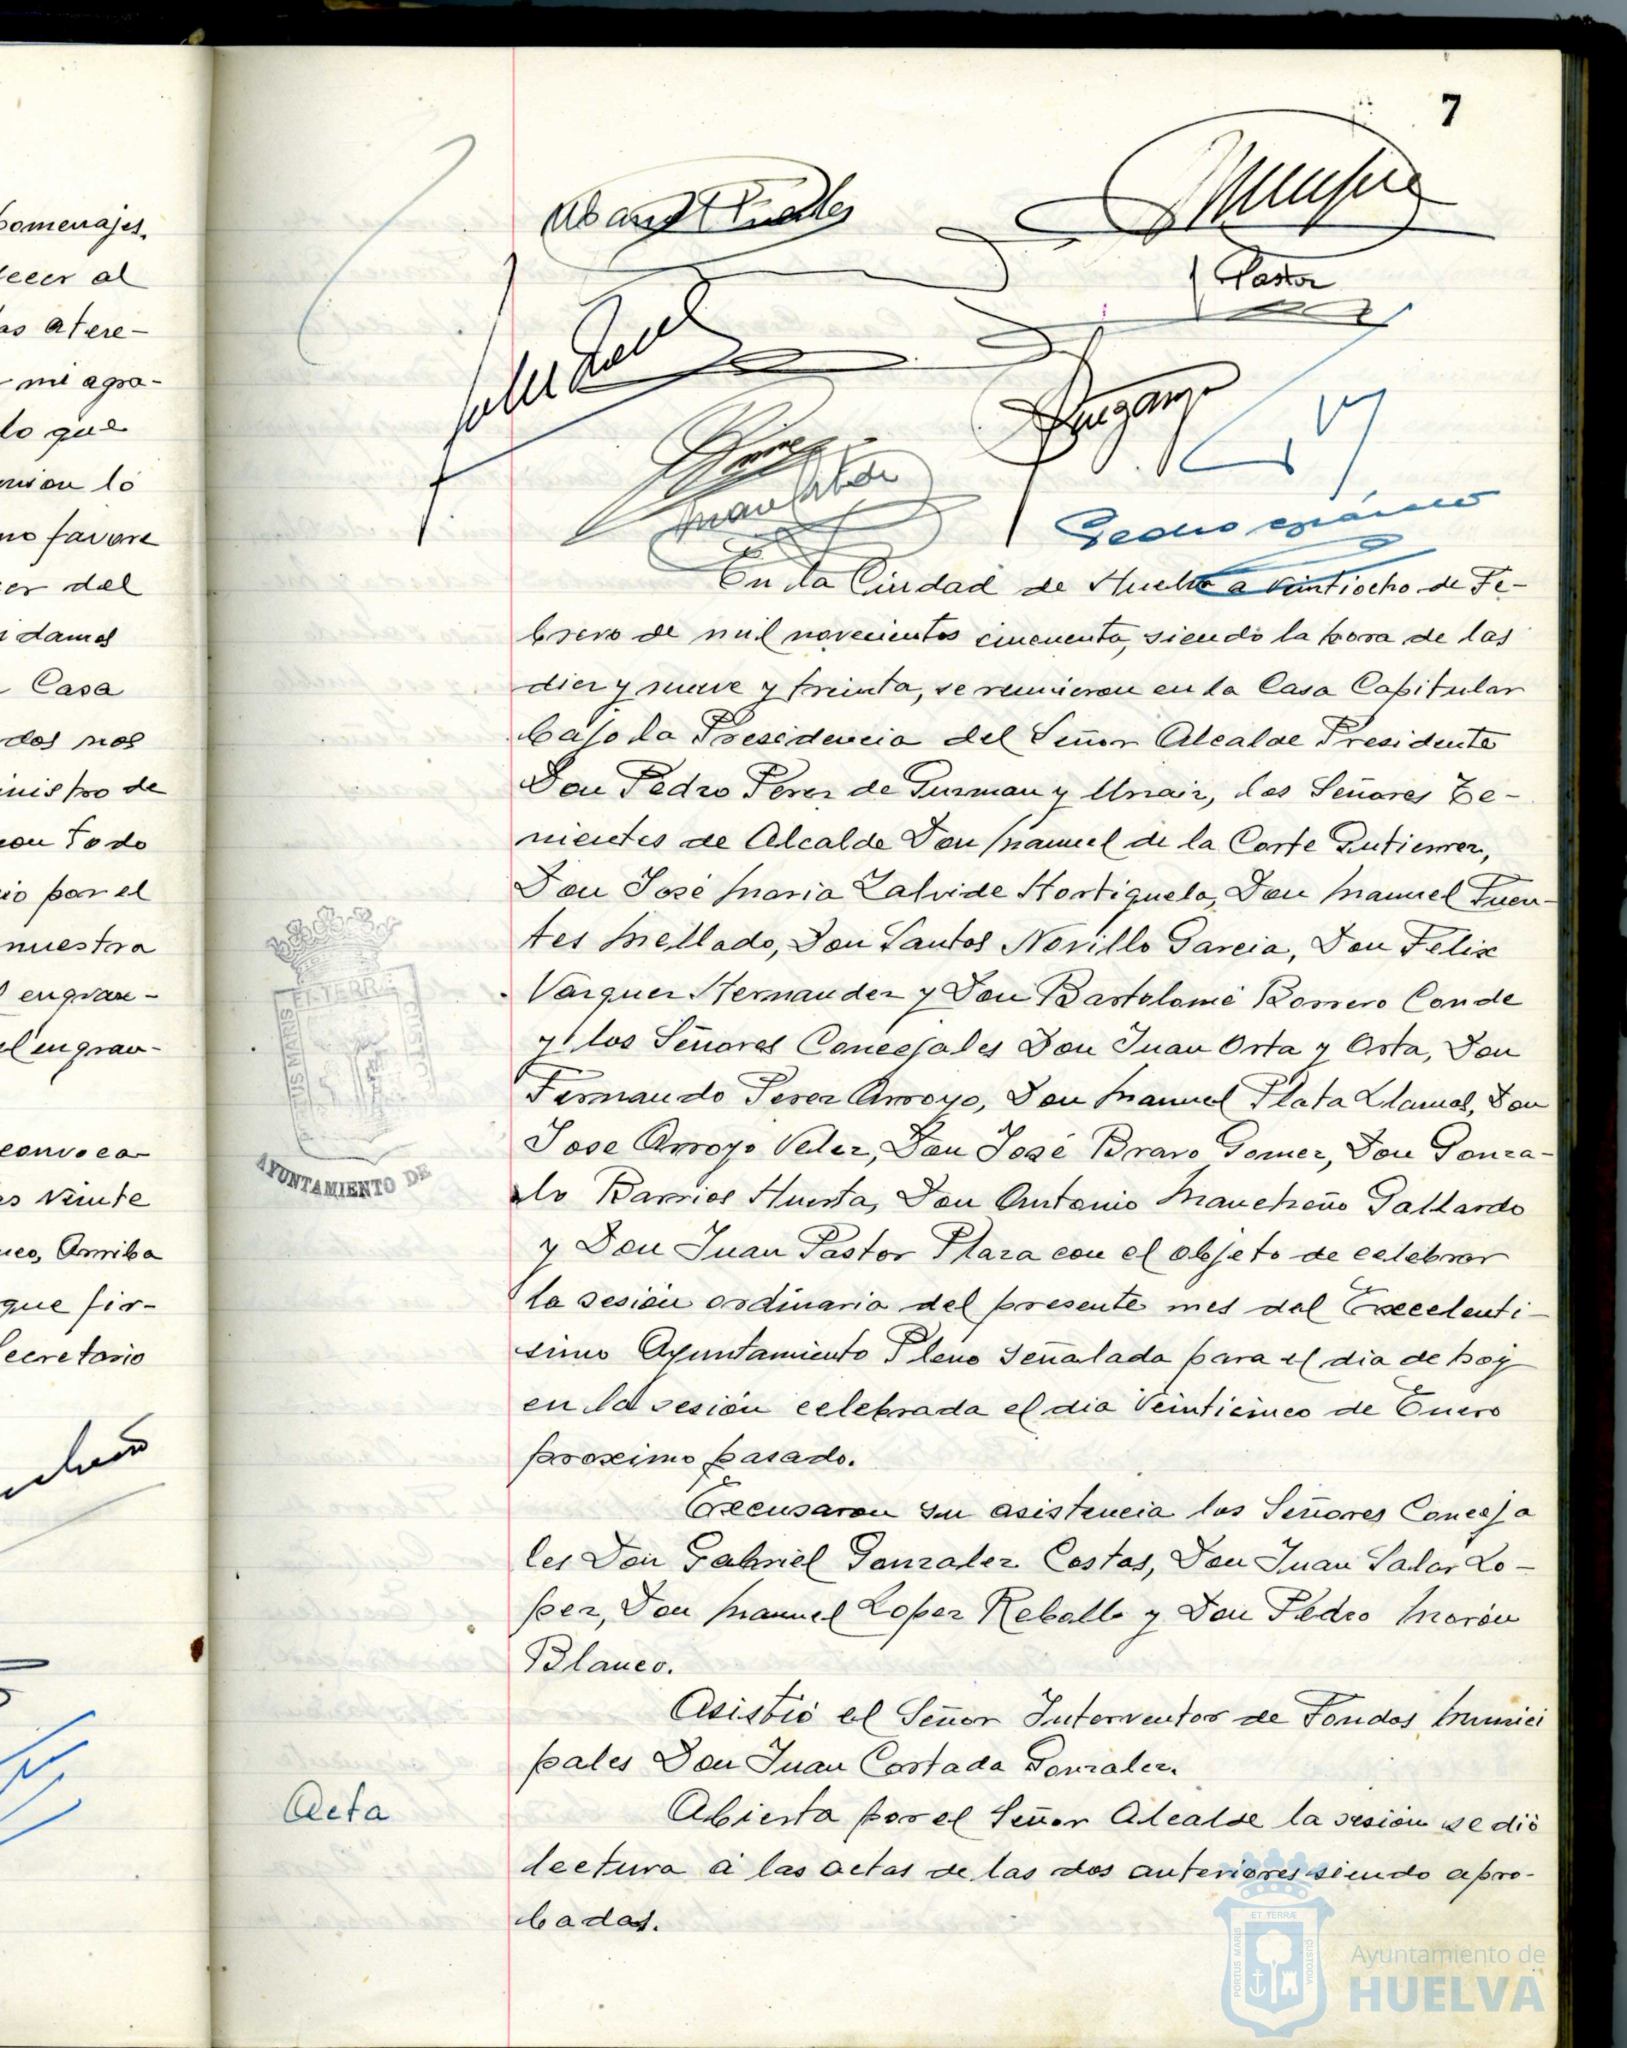 7
Pastor
En la Ciudad de Huelva a veintiocho de Fe-
brero de mil novecientos cincuenta, siendo la hora de las
diez y nueve y treinta, se reunieron en la Casa Capitular
bajo la Presidencia del Señor Alcalde Presidente
Don Pedro Perez de Guzman y Urzaiz, los Señores Te-
nientes de Alcalde Don Manuel de la Corte Gutierrez,
Don José Maria Zalvide Hortiguela, Don Manuel Fuen-
tes Mellado, Don Santos Novillo Garcia, Don Felix
Vazquez Hernandez y Don Bartolomé Borrero Conde
y los Señores Concejales Don Juan Orta y Orta, Don
Fernando Perez Arroyo, Don Manuel Plata Llamas, Don
Jose Arroyo Velez, Don José Bravo Gomez, Don Gonza-
lo Barrios Huerta, Don Antonio Mancheño Gallardo
y Don Juan Pastor Plaza con el objeto de celebrar
la sesión ordinaria del presente mes del Excelenti-
simo Ayuntamiento Pleno señalada para el dia de hoy
en la sesión celebrada el dia veinticinco de Enero
proximo pasado.
Excusaron su asistencia los Señores Conceja
les Don Gabriel Gonzalez Costas, Don Juan Salas Lo-
pez, Don Manuel Lopez Rebollo y Don Pedro Morón
Blanco.
Asistió el Señor Interventor de Fondos Munici
pales Don Juan Costada Gonzalez.
Acta
Abierta por el Señor Alcalde la sesión se dió
lectura á las actas de las dos anteriores siendo apro-
badas.
AYUNTAMIENTO DE
homenajes.
al
as atere-
mi agra-
lo que
lo
no favore
er del
damos
Casa
dos nos
inistro de
con todo
io por el
nuestra
engran-
el engran-
convoca
as veinte
Arriba
que fir-
Secretario
PORTUS MARIS ET TERRÆ CUSTODIA
Ayuntamiento de
HUELVA